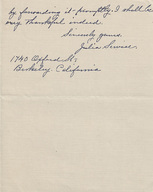 by forwarding it promptly. I shall be
very thankful indeed.
Sincerely yours,
Julia
1740 Oxford St.
Berkeley California